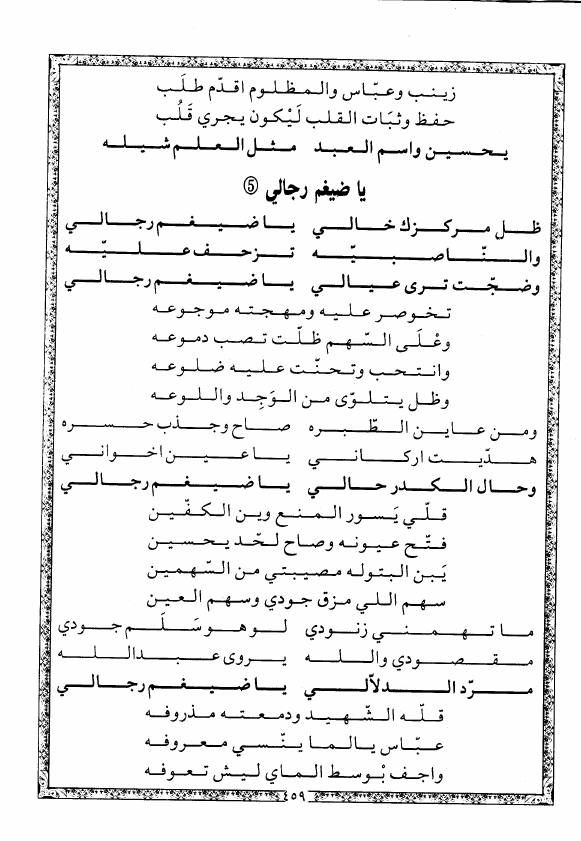 زينب وعبّاس والمظلوم اقدّم طلَب
حفظ وثبَات القلب لَيْكون يجري قَلُب
يحسين واسم العبد مثل العلم شيله
يا ضيغم رجالي ⑤
ظل مركزك خالي يا ضيغم رجالي
والنّاصبيّه تزحف عليّه
وضجّت ترى عيالي يا ضيغم رجالي
تخوصر عليه ومهجته موجوعه
وعْلَى السّهم ظلّت تصب دموعه
وانتحب وتحنّت عليه ضلوعه
وظل يتلوّى من الوَجِد واللوعه
ومن عاين الطّبره صاح وجذب حسره
هدّيت اركاني يا عين اخواني
وحال الكدر حالي يا ضيغم رجالي
قلّي يَسور المنع وين الكفّين
فتّح عيونه وصاح لحّد يحسين
يَبن البتوله مصيبتي من السّهمين
سهم اللي مزق جودي وسهم العين
ما تهمني زنودي لو هو سَلَم جودي
مقصودي والله يروى عبدالله
مرّد الدلاّلي يا ضيغم رجالي
قلّه الشّهيد ودمعته مذروفه
عبّاس يالما ينّسي معروفه
واجف بْوسط الماي ليش تعوفه
٤٥٩